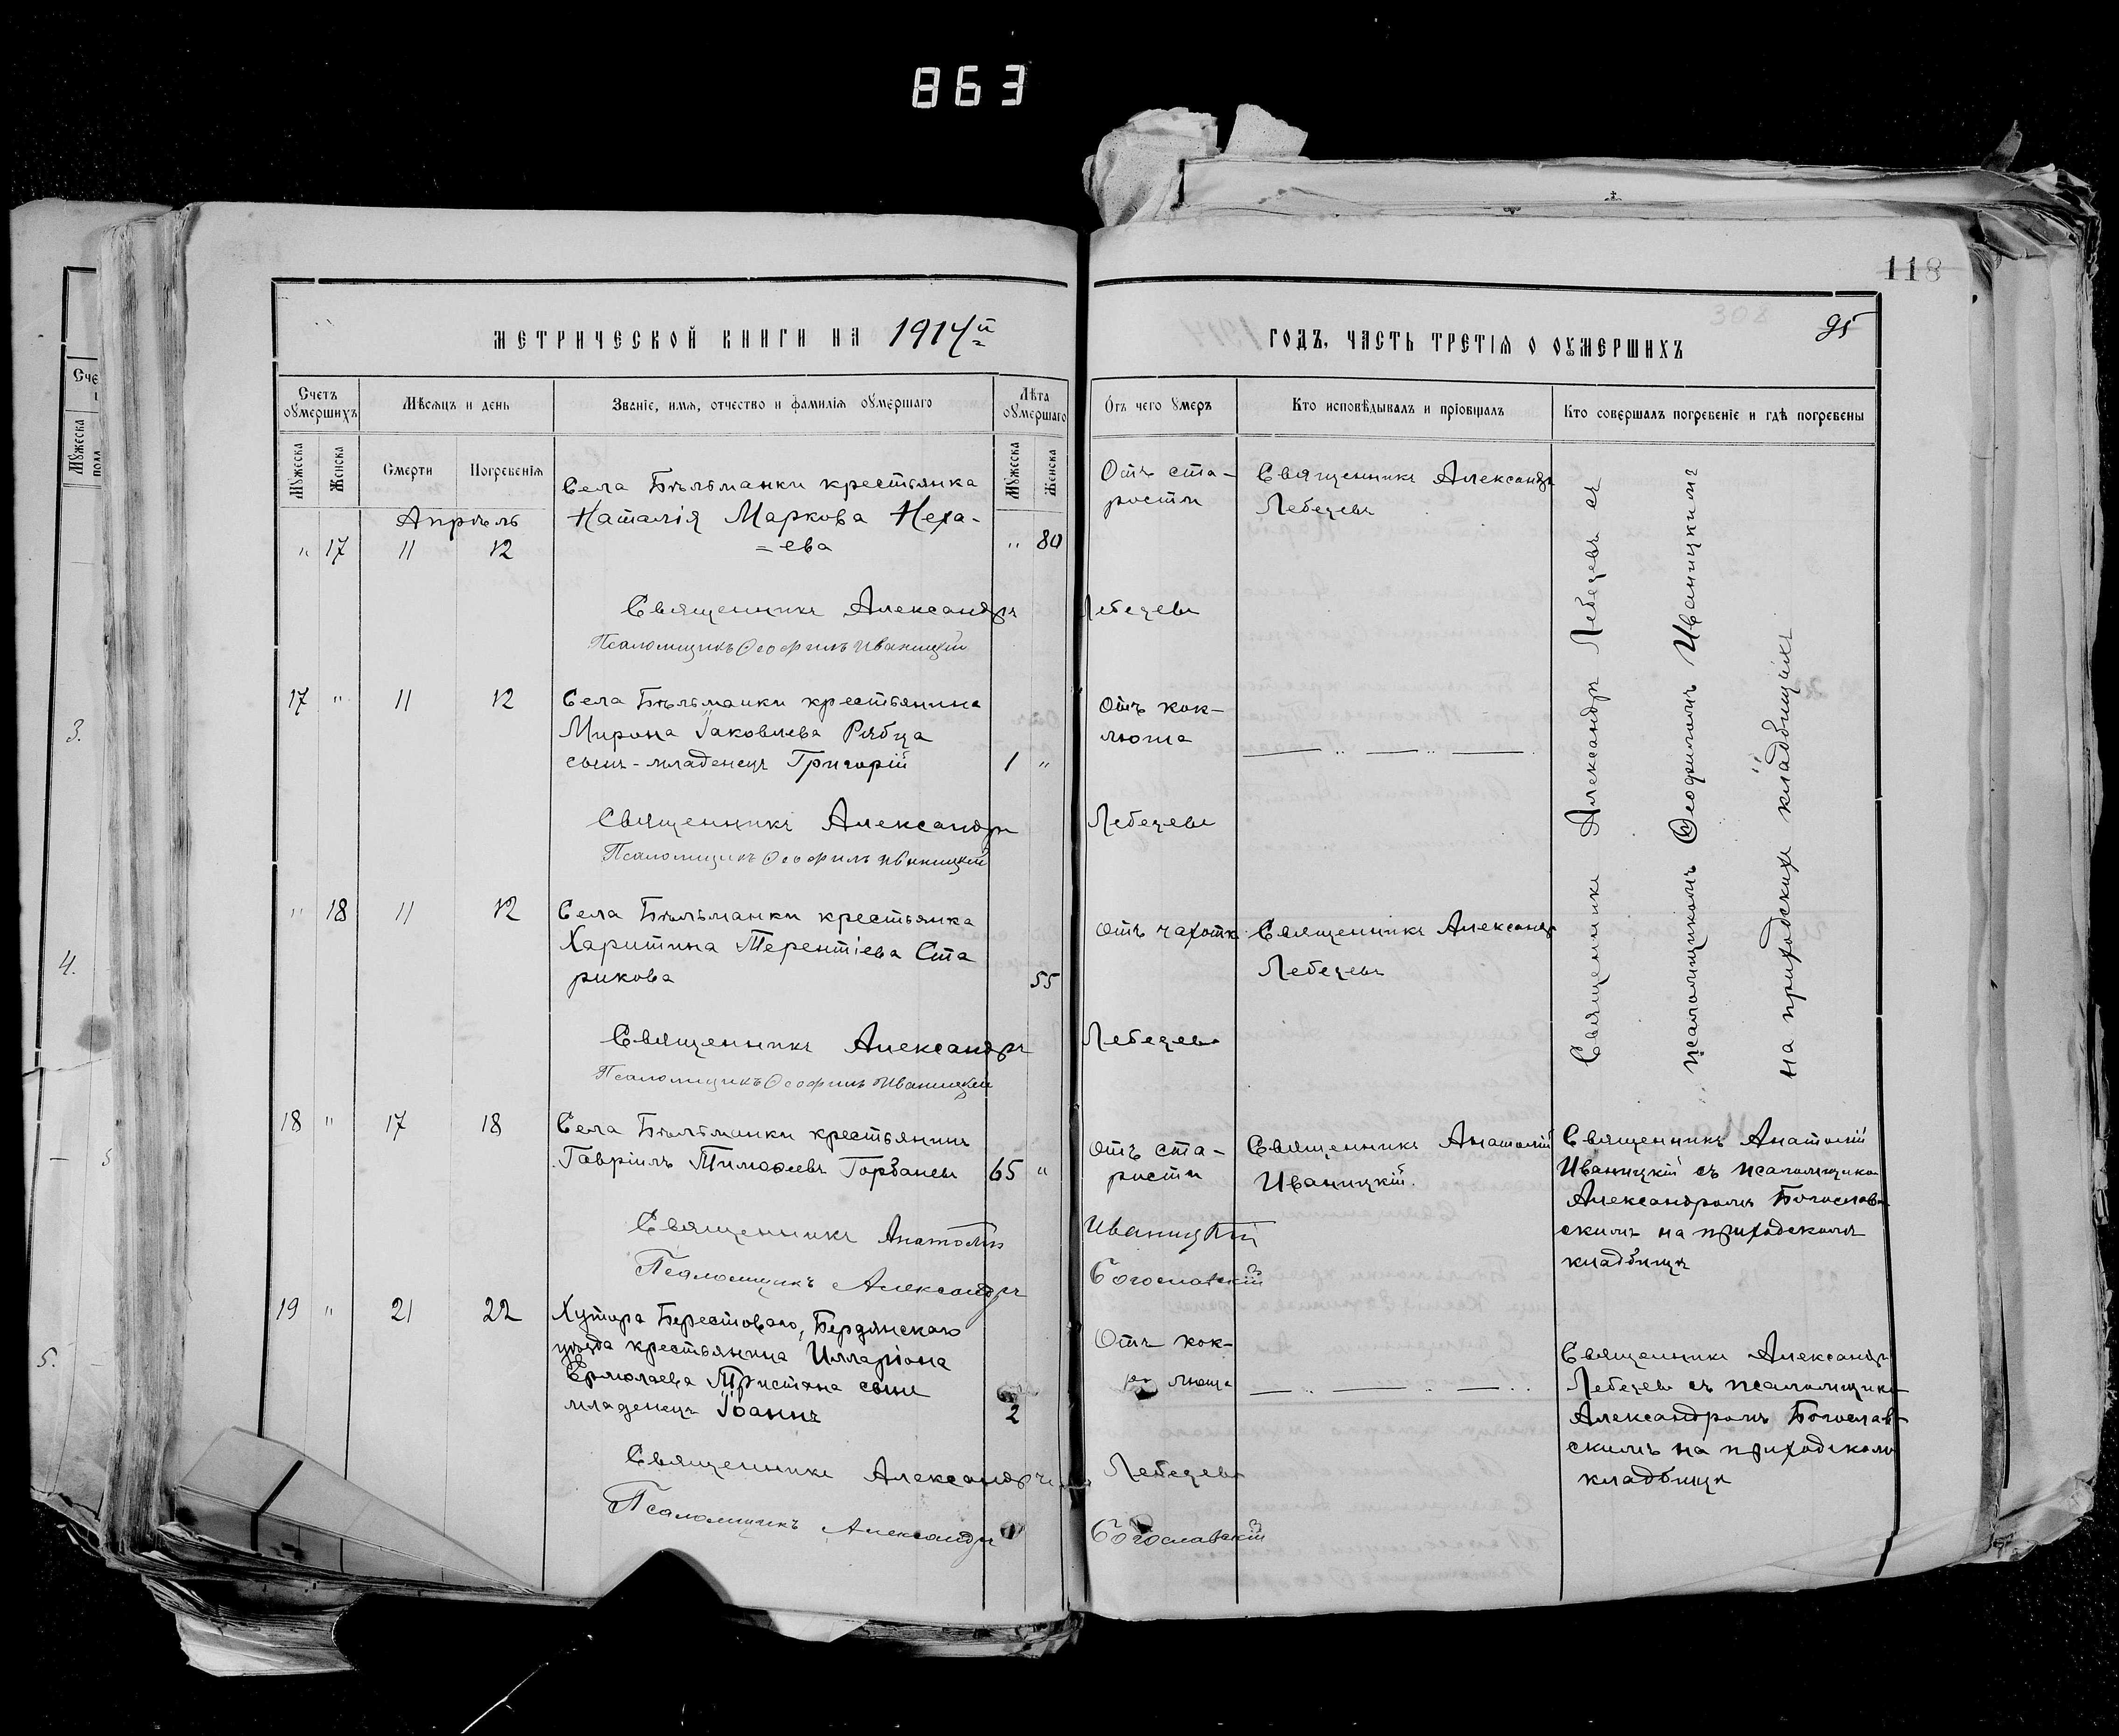 863
118
308
95
МЕТРИЧЕСКОЙ КНИГИ НА 1914й
ГОДЪ, ЧАСТЬ ТРЕТІЯ О ОУМЕРШИХЪ
Счетъ оумершихъ
Мѣсяцъ и день
Званіе, имя, отчество и фамилія оумершаго
Лѣта оумершаго
Отъ чего оумеръ
Кто исповѣдывалъ и пріобщалъ
Кто совершалъ погребеніе и гдѣ погребены
Мужеска
Женска
Смерти
Погребенія
Мужеска
Женска
Апрѣль
" 17 11 12
Села Бѣльманки крестьянка
Наталія Маркова Неха-
=ева
" 80
Отъ ста-
рости
Священникъ Александръ
Лебедевъ
Священникъ Александръ Лебедевъ
Псаломщикъ Ѳеофилъ Иваницкій
17 " 11 12
Села Бѣльманки крестьянина
Мирона Іаковлева Рябца
сынъ-младенецъ Григорій
1 "
Отъ кок-
люша
Священникъ Александръ Лебедевъ
Псаломщикъ Ѳеофилъ Иваницкій
" 18 11 12
Села Бѣльманки крестьянка
Харитина Терентіева Ста
рикова
55
Отъ чахотк
Священникъ Александръ
Лебедевъ
Священникъ Александръ Лебедевъ
Псаломщикъ Ѳеофилъ Иваницкій
Священникъ Александръ Лебедевъ съ
псаломщикомъ Ѳеофиломъ Иваницкимъ
на приходскихъ кладбищахъ
18 " 17 18
Села Бѣльманки крестьянинъ
Гавріилъ Тимоѳеевъ Горбанев
65 "
Отъ ста-
рости
Священникъ Анатолій
Иваницкій.
Священникъ Анатолій
Иваницкій съ псаломщико
Александромъ Богослов
скимъ на приходскомъ
кладбищѣ
Священникъ Анатолій Иваницкій
Псаломщикъ Александръ Богословскій
19 " 21 22
Хутора Берестоваго, Бердянскаго
уѣзда крестьянина Илларіона
Ермолаева Тристана сынъ
младенецъ Іоаннъ
2
Отъ кок-
люша
Священникъ Александръ
Лебедевъ съ псаломщико
Александромъ Богослав
скимъ на приходскомъ
кладбищѣ
Священникъ Александръ Лебедевъ
Псаломщикъ Александръ Богославскій
Сче
Мужеска
пола
3.
4.
5.